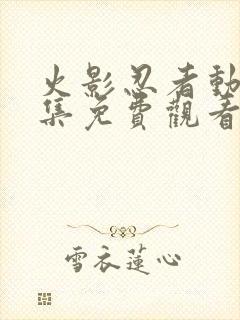 火影忍者動
集免費觀看
雪衣蓮心